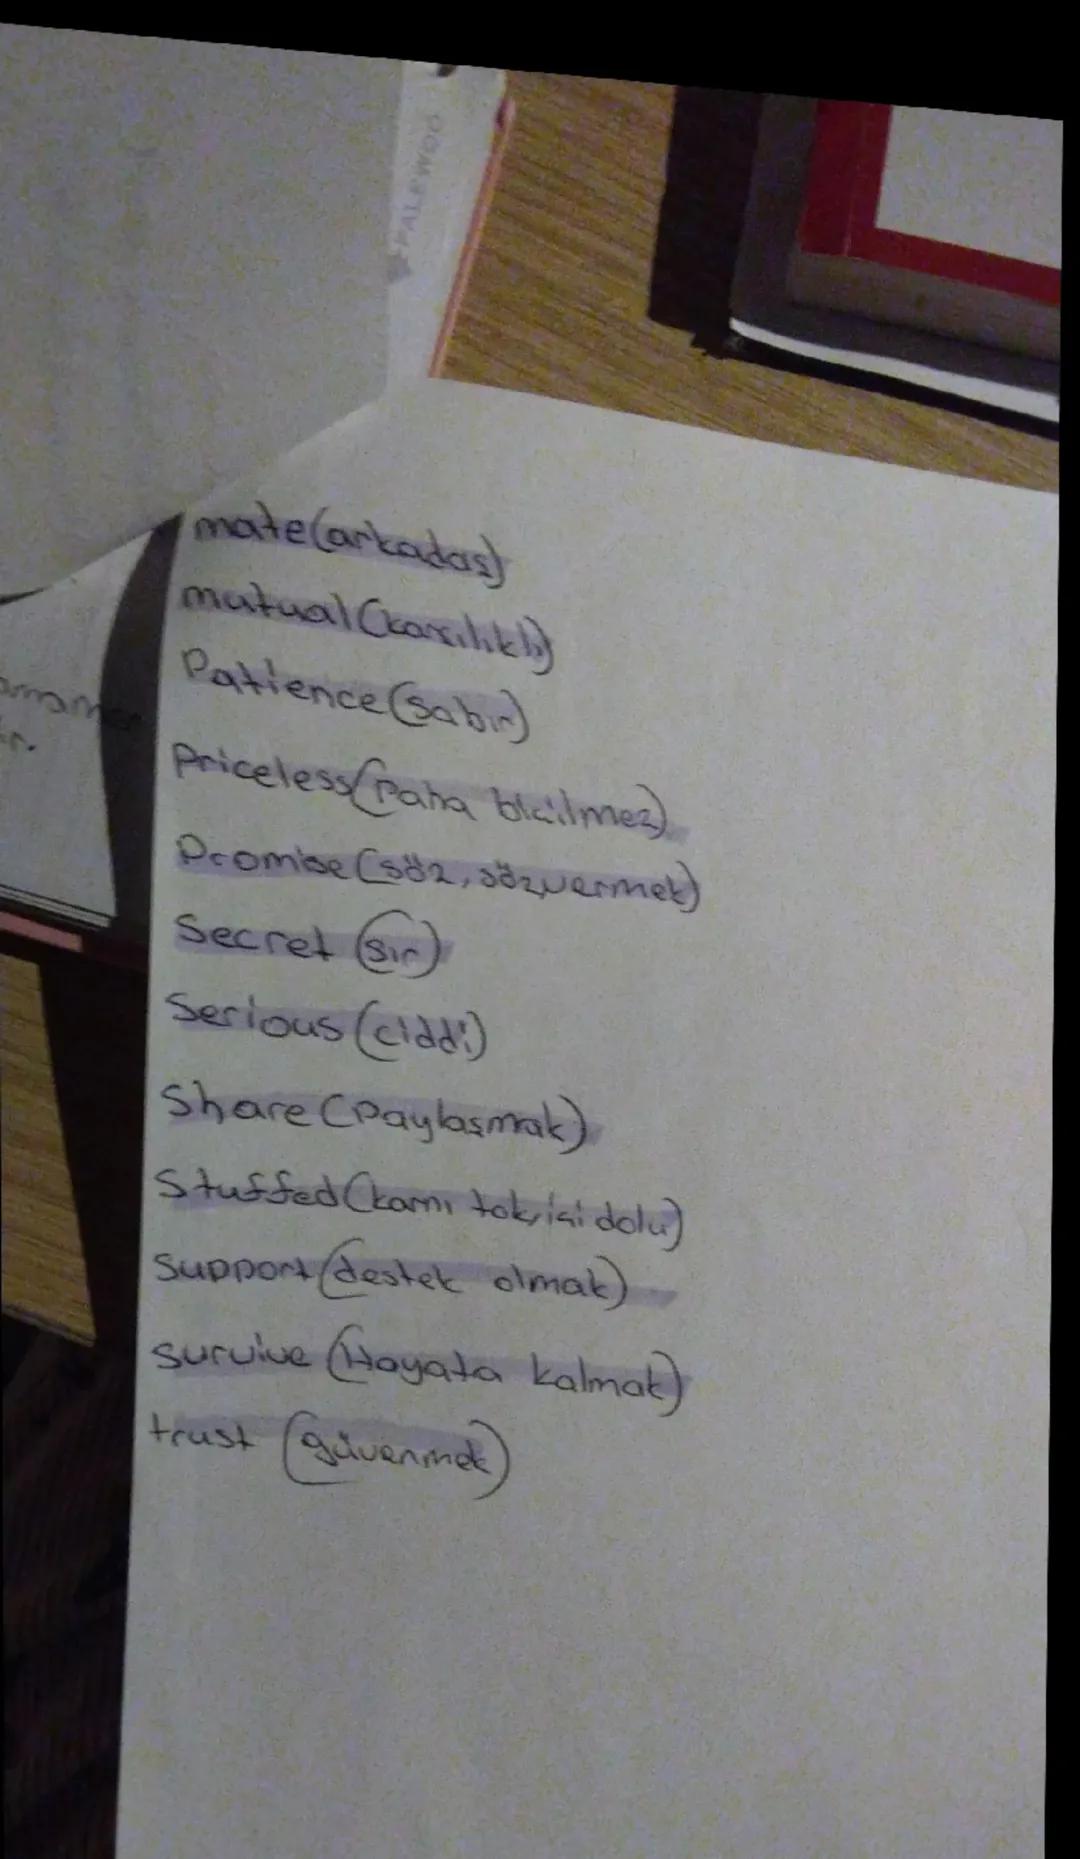 PALEWOO
mate(arkadaş)
mutual(karşılıklı)
Patience(sabır)
Priceless(Paha biçilmez)
Promise(söz, söz vermek)
Secret (sır)
Serious(ciddi)
Share(Paylaşmak)
Stuffed(karnı tok, içi dolu)
Support(destek olmak)
survive(Hayata kalmak)
trust (güvenmek)